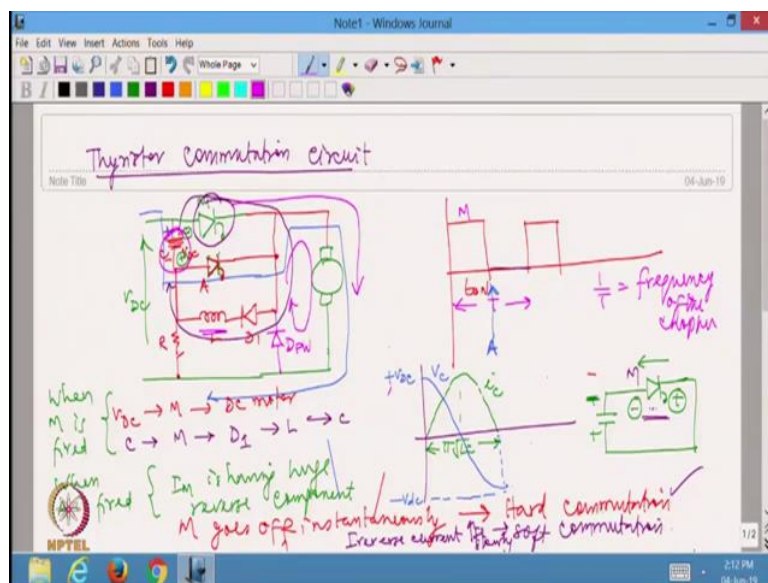 Note1 - Windows Journal
File Edit View Insert Actions Tools Help
Whole Page
B I
Thyristor commutation circuit
Note Title
04-Jun-19
M
VDC
A
R
L
D1
DFW
M
ton
T
A
1/T = frequency of the chopper
+VDC
VC
iC
π√LC
-Vdc
M
When M is fired
VDC → M → DC motor
C → M → D1 → L → C
When fired
Im is having huge reverse component
M goes off instantaneously → Hard commutation
Ireverse current → soft commutation
NPTEL
1/2
2:12 PM
04-Jun-19